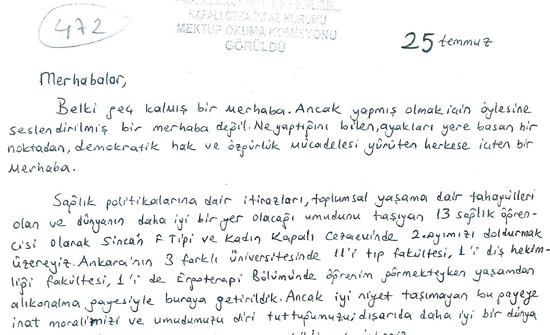 472
KAPALI CEZA İNFAZ KURUMU
MEKTUP OKUMA KOMİSYONU
GÖRÜLDÜ
25 temmuz
Merhabalar,
Belki geç kalmış bir merhaba. Ancak yapmış olmak için öylesine
seslendirilmiş bir merhaba değil. Ne yaptığını bilen, ayakları yere basan bir
noktadan, demokratik hak ve özgürlük mücadelesi yürüten herkese içten bir
Merhaba.
Sağlık politikalarına dair itirazları, toplumsal yaşama dair tahayyülleri
olan ve dünyanın daha iyi bir yer olacağı umudunu taşıyan 13 sağlık öğren-
cisi olarak Sincan F Tipi ve Kadın Kapalı Cezaevinde 2. ayımızı doldurmak
üzereyiz. Ankara'nın 3 farklı üniversitesinde 11'i tıp fakültesi, 1'i diş hekim-
liği fakültesi, 1'i de Ergoterapi Bölümünde öğrenim görmekteyken yaşamdan
alıkonalma payesiyle buraya getirildik. Ancak iyi niyet taşımayan bu payeye
inat moralimizi ve umudumuzu diri tuttuğumuzu; dışarıda daha iyi bir dünya